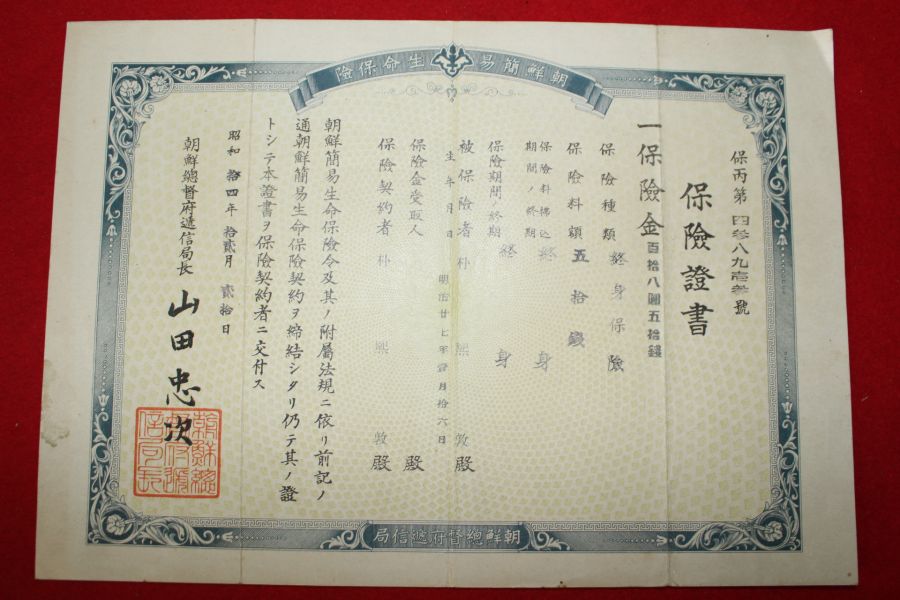 朝鮮簡易生命保險
保丙第四参八九壱参號
保險證書
一保險金百拾八圓五拾錢
保險種類 終身保險
保險料額 五拾錢
保險料拂込期間ノ終期 終身
保險期間ノ終期 終身
被保險者 朴熙敦殿
生年月日 明治廿七年壹月拾六日
保險金受取人 殿
保險契約者 朴熙敦殿
朝鮮簡易生命保險令及其ノ附屬法規ニ依リ前記ノ
通朝鮮簡易生命保險契約ヲ締結シタリ仍テ其ノ證
トシテ本證書ヲ保險契約者ニ交付ス
昭和拾四年拾貳月貳拾日
朝鮮總督府遞信局長 山田忠次
朝鮮總督府遞信局